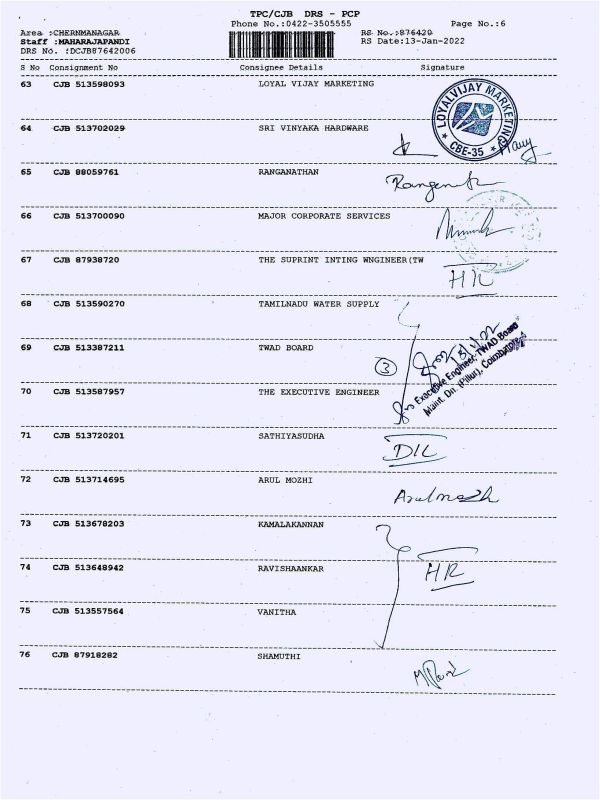 TPC/CJB DRS - PCP
Phone No.:0422-3505555
Page No.:6
Area :CHERNMANAGAR
RS No.:876420
Staff :MAHARAJAPANDI
RS Date:13-Jan-2022
DRS No. :DCJB87642006
S No Consignment No Consignee Details Signature
63 CJB 513598093 LOYAL VIJAY MARKETING
LOYALVIJAY MARKETING
CBE-35
64 CJB 513702029 SRI VINYAKA HARDWARE
65 CJB 88059761 RANGANATHAN
66 CJB 513700090 MAJOR CORPORATE SERVICES
67 CJB 87938720 THE SUPRINT INTING WNGINEER(TW
HR
68 CJB 513590270 TAMILNADU WATER SUPPLY
69 CJB 513387211 TWAD BOARD
3
Executive Engineer, TWAD Board
Maint. Dn. (Pillur), Coimbatore
70 CJB 513587957 THE EXECUTIVE ENGINEER
71 CJB 513720201 SATHIYASUDHA
72 CJB 513714695 ARUL MOZHI
73 CJB 513678203 KAMALAKANNAN
74 CJB 513648942 RAVISHAANKAR
HR
75 CJB 513557564 VANITHA
76 CJB 87918282 SHAMUTHI